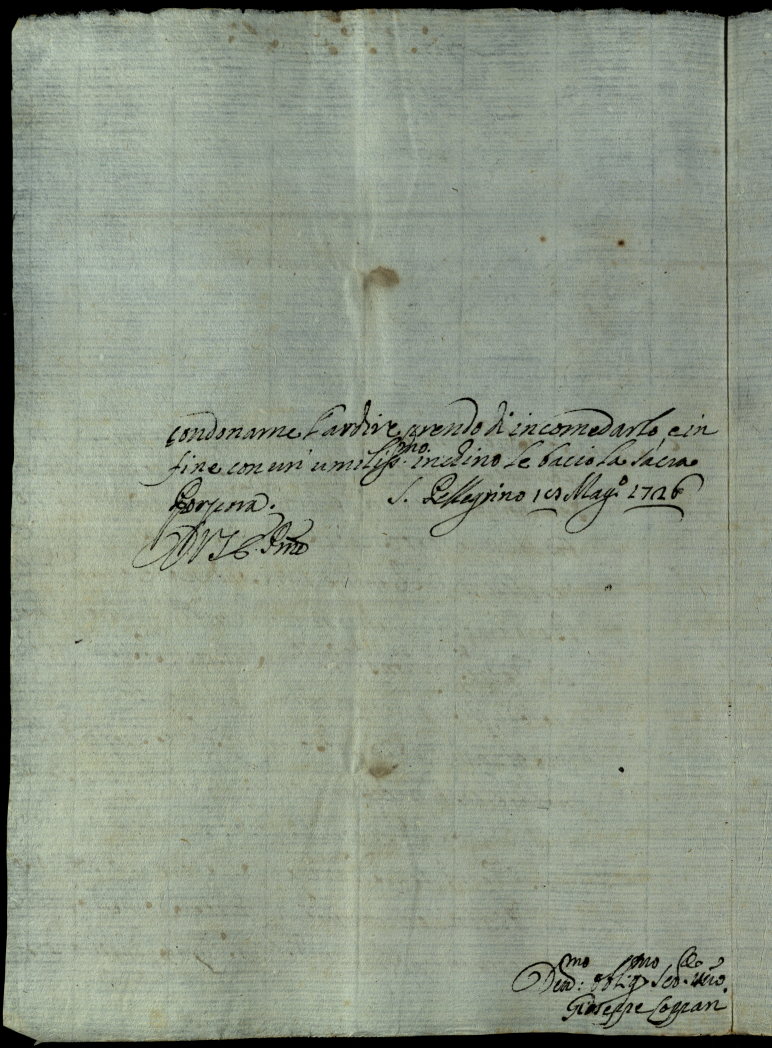 condonarne l'ardire prendo di incomodarlo e in
fine con un' umiliss.mo inchino le bacio la sacra
Porpora. S. Pellegrino 13 Mag.o 1726
D V S Ill.
Deu.mo oblig.mo Ser.
Giuseppe